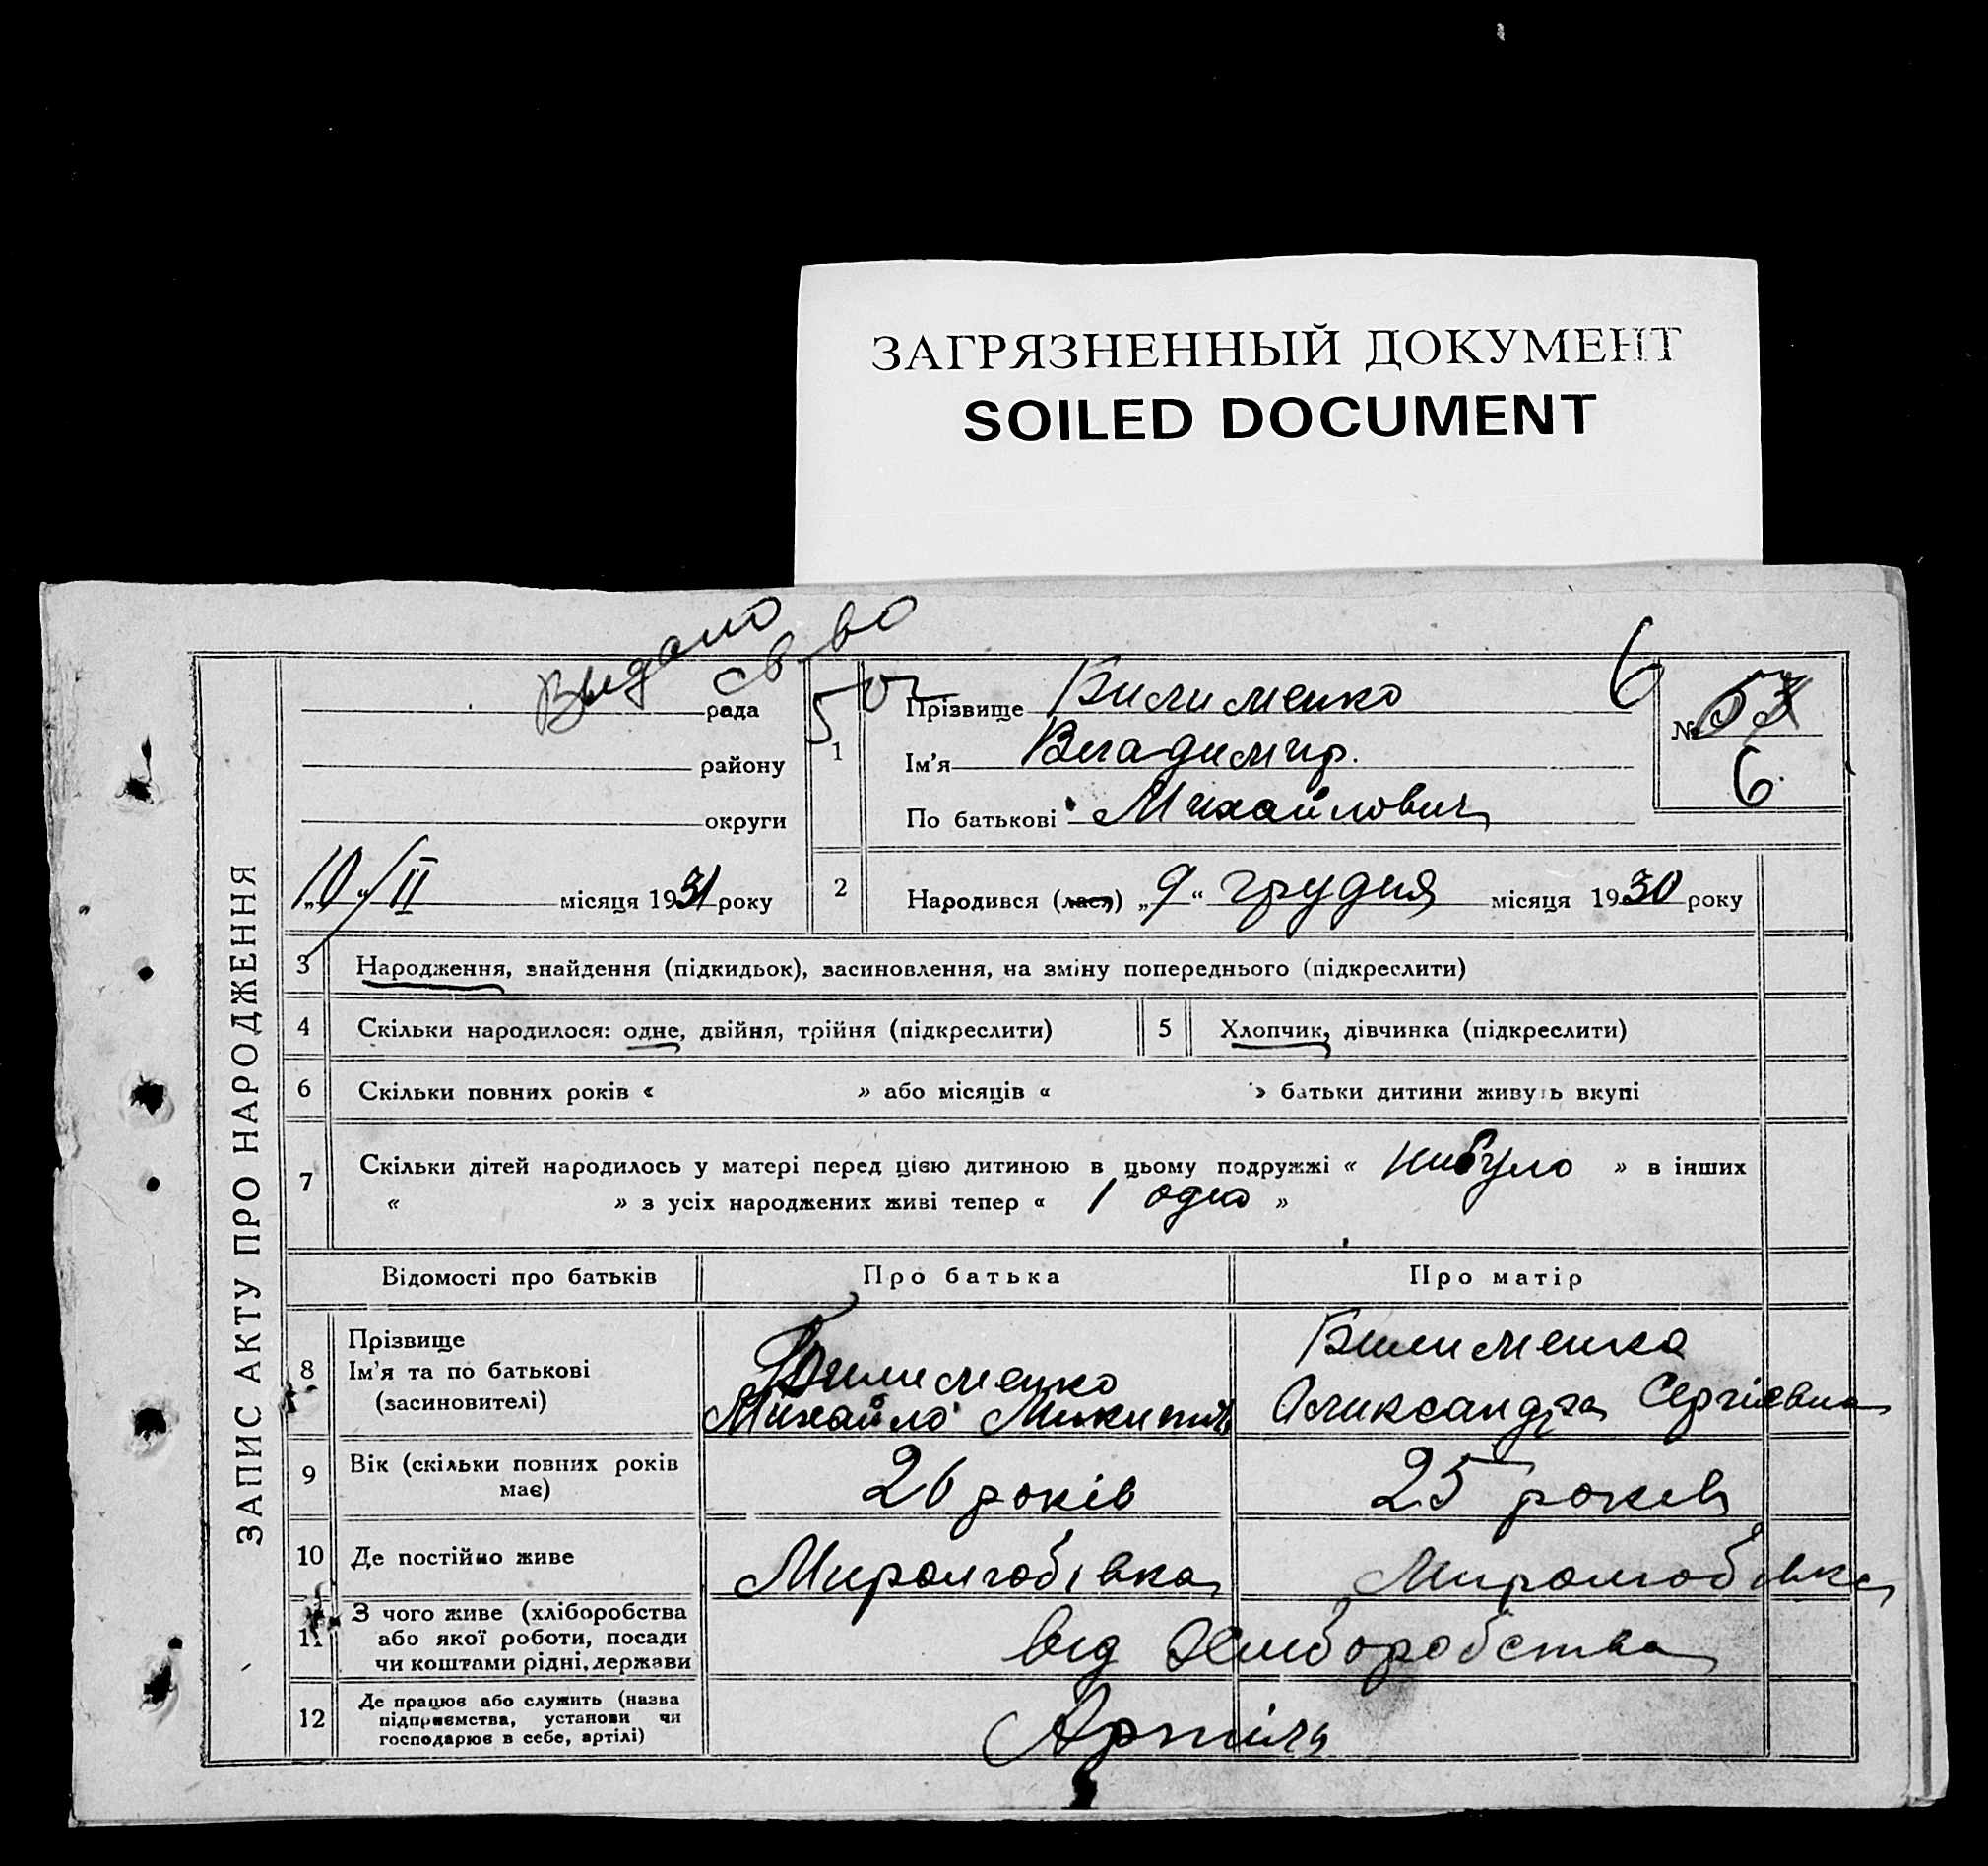 ЗАГРЯЗНЕННЫЙ ДОКУМЕНТ
SOILED DOCUMENT
Выдано
св-во
ЗАПИС АКТУ ПРО НАРОДЖЕННЯ
рада
району
округи
10/II місяця 1931 року
1
Прізвище Билименко
Ім'я Владимир.
По батькові Михайлович
6
№ 53
6.
2 Народився (лася) „9“ грудня місяця 1930 року
3 Народження, знайдення (підкидьок), засиновлення, на зміну попереднього (підкреслити)
4 Скільки народилося: одне, двійня, трійня (підкреслити)
5 Хлопчик, дівчинка (підкреслити)
6 Скільки повних років « » або місяців « » батьки дитини живуть вкупі
7 Скільки дітей народилось у матері перед цією дитиною в цьому подружжі « нибуло » в інших
« » з усіх народжених живі тепер « 1 одно »
Відомості про батьків Про батька Про матір
8 Прізвище
Ім'я та по батькові
(засиновителі)
Билименко
Михайло
Билименка
Олександра Сергієвна
9 Вік (скільки повних років
має)
26 років 25 років
10 Де постійно живе Миролюбівка Миролюбівка
11 З чого живе (хліборобства
або якої роботи, посади
чи коштами рідні, держави
від Хлиборобства
12 Де працює або служить (назва
підприємства, установи чи
господарює в себе, артілі)
Артіль